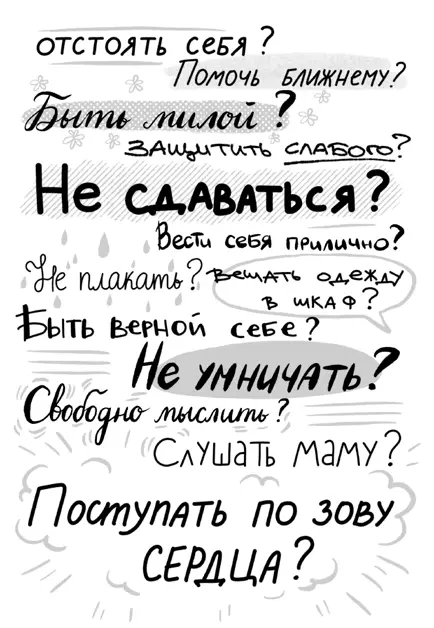 отстоять себя?
Помочь ближнему?
Быть милой?
защитить слабого?
Не сдаваться?
Вести себя прилично?
Не плакать?
вешать одежду
в шкаф?
Быть верной себе?
Не умничать?
Свободно мыслить?
Слушать маму?
Поступать по зову
СЕРДЦА?